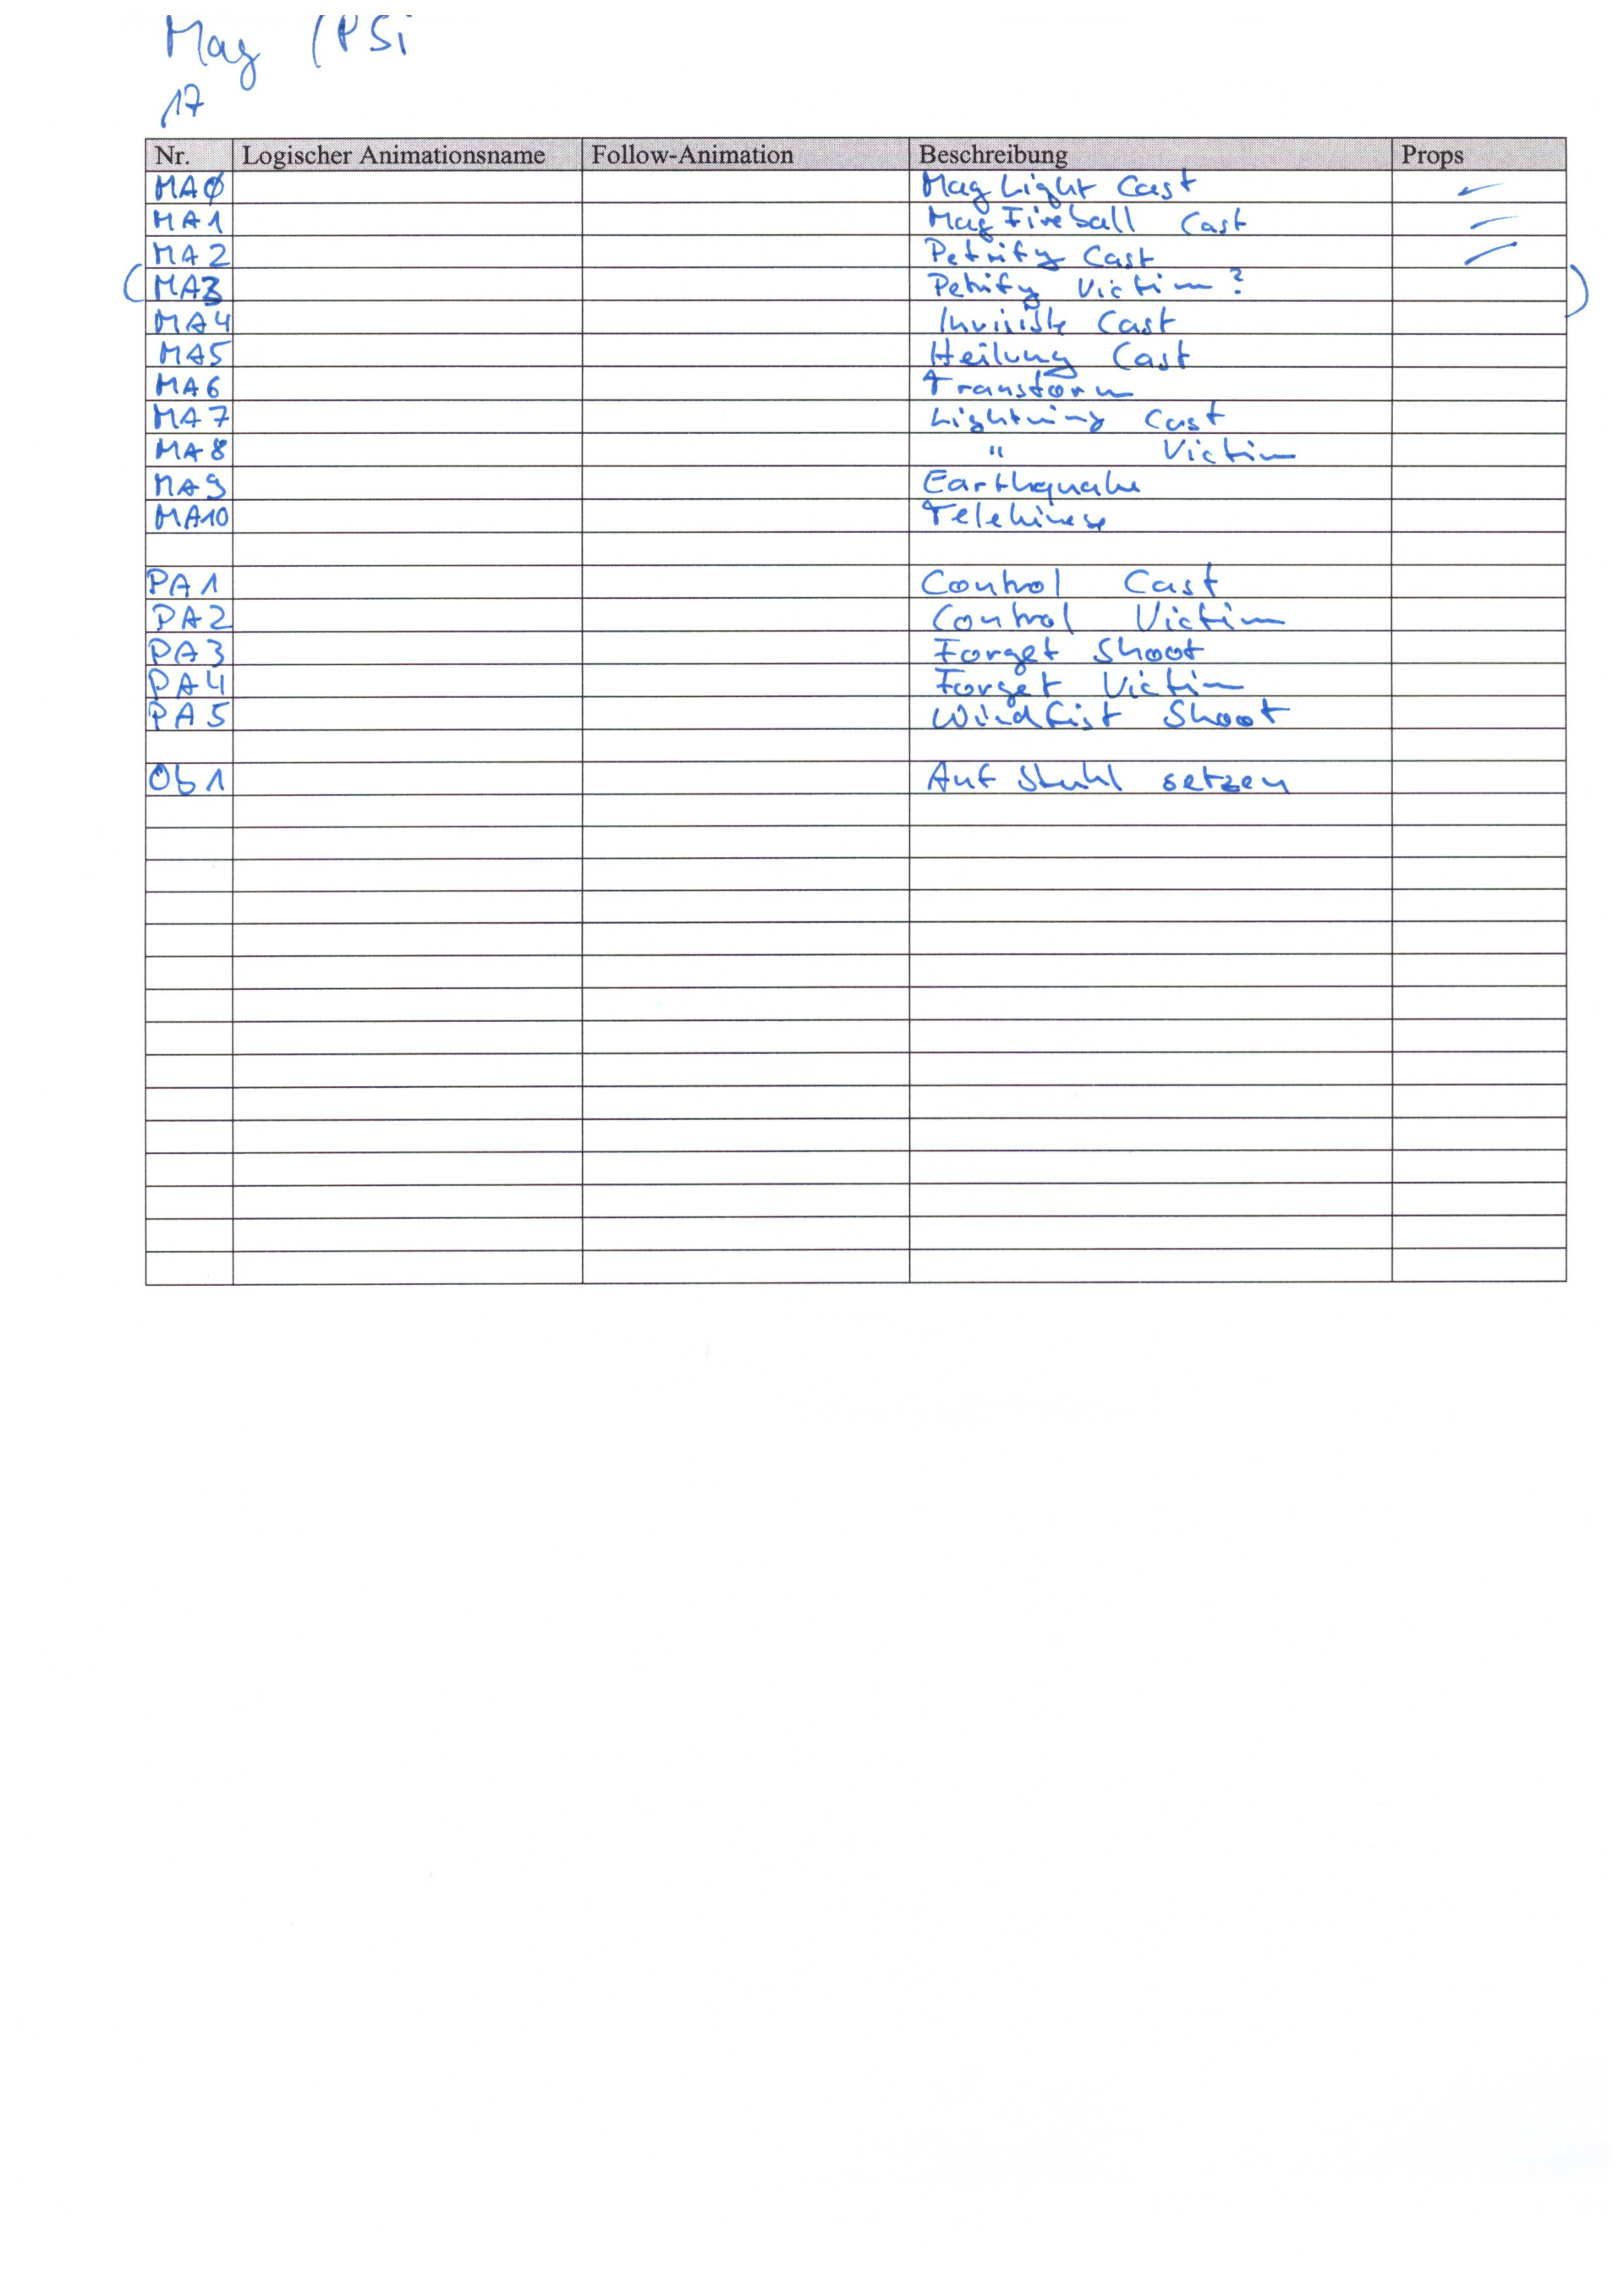 Mag / PSi
17
Nr. Logischer Animationsname Follow-Animation Beschreibung Props
MAØ Mag Light Cast –
MA1 Mag Fireball Cast –
MA2 Petrify Cast –
(MA3 Petrify Victim? )
MA4 Invisible Cast
MA5 Heilung Cast
MA6 Transform
MA7 Lightning Cast
MA8 " Victim
MA9 Earthquake
MA10 Telekinese
PA1 Control Cast
PA2 Control Victim
PA3 Forget Shoot
PA4 Forget Victim
PA5 Windfist Shoot
Ob1 Auf Stuhl setzen